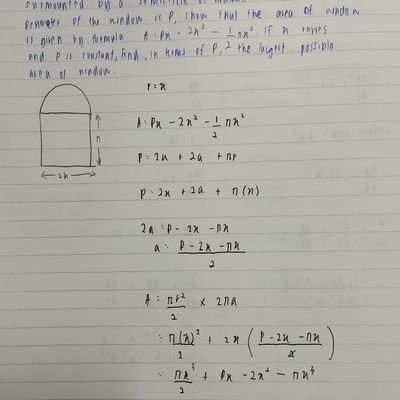 surmounted by a semicircle of
perimeter of the window is P, show that the area of window
is given by formula A = Px - 2x² - 1/2 πx². If x varies
and P is constant, find, in terms of P, the largest possible
area of window.
r = x
A = Px - 2x² - 1/2 πx²
P = 2x + 2a + πr
P = 2x + 2a + π(x)
n
2x
2a = P - 2x - πx
a = P - 2x - πx / 2
A = πr²/2 × 2πa
= π(x)²/2 + 2x (P - 2x - πx / 2)
= πx²/2 + Px - 2x² - πx²